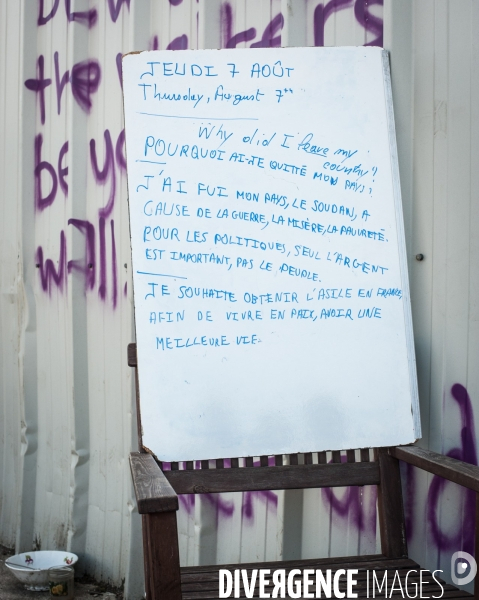 the
be you
wall
JEUDI 7 AOÛT
Thursday, August 7th
Why did I leave my country?
POURQUOI AI-JE QUITTÉ MON PAYS?
J'AI FUI MON PAYS, LE SOUDAN, A
CAUSE DE LA GUERRE, LA MISÈRE, LA PAUVRETÉ.
POUR LES POLITIQUES, SEUL L'ARGENT
EST IMPORTANT, PAS LE PEUPLE.
JE SOUHAITE OBTENIR L'ASILE EN FRANCE,
AFIN DE VIVRE EN PAIX, AVOIR UNE
MEILLEURE VIE.
DIVERGENCE IMAGES